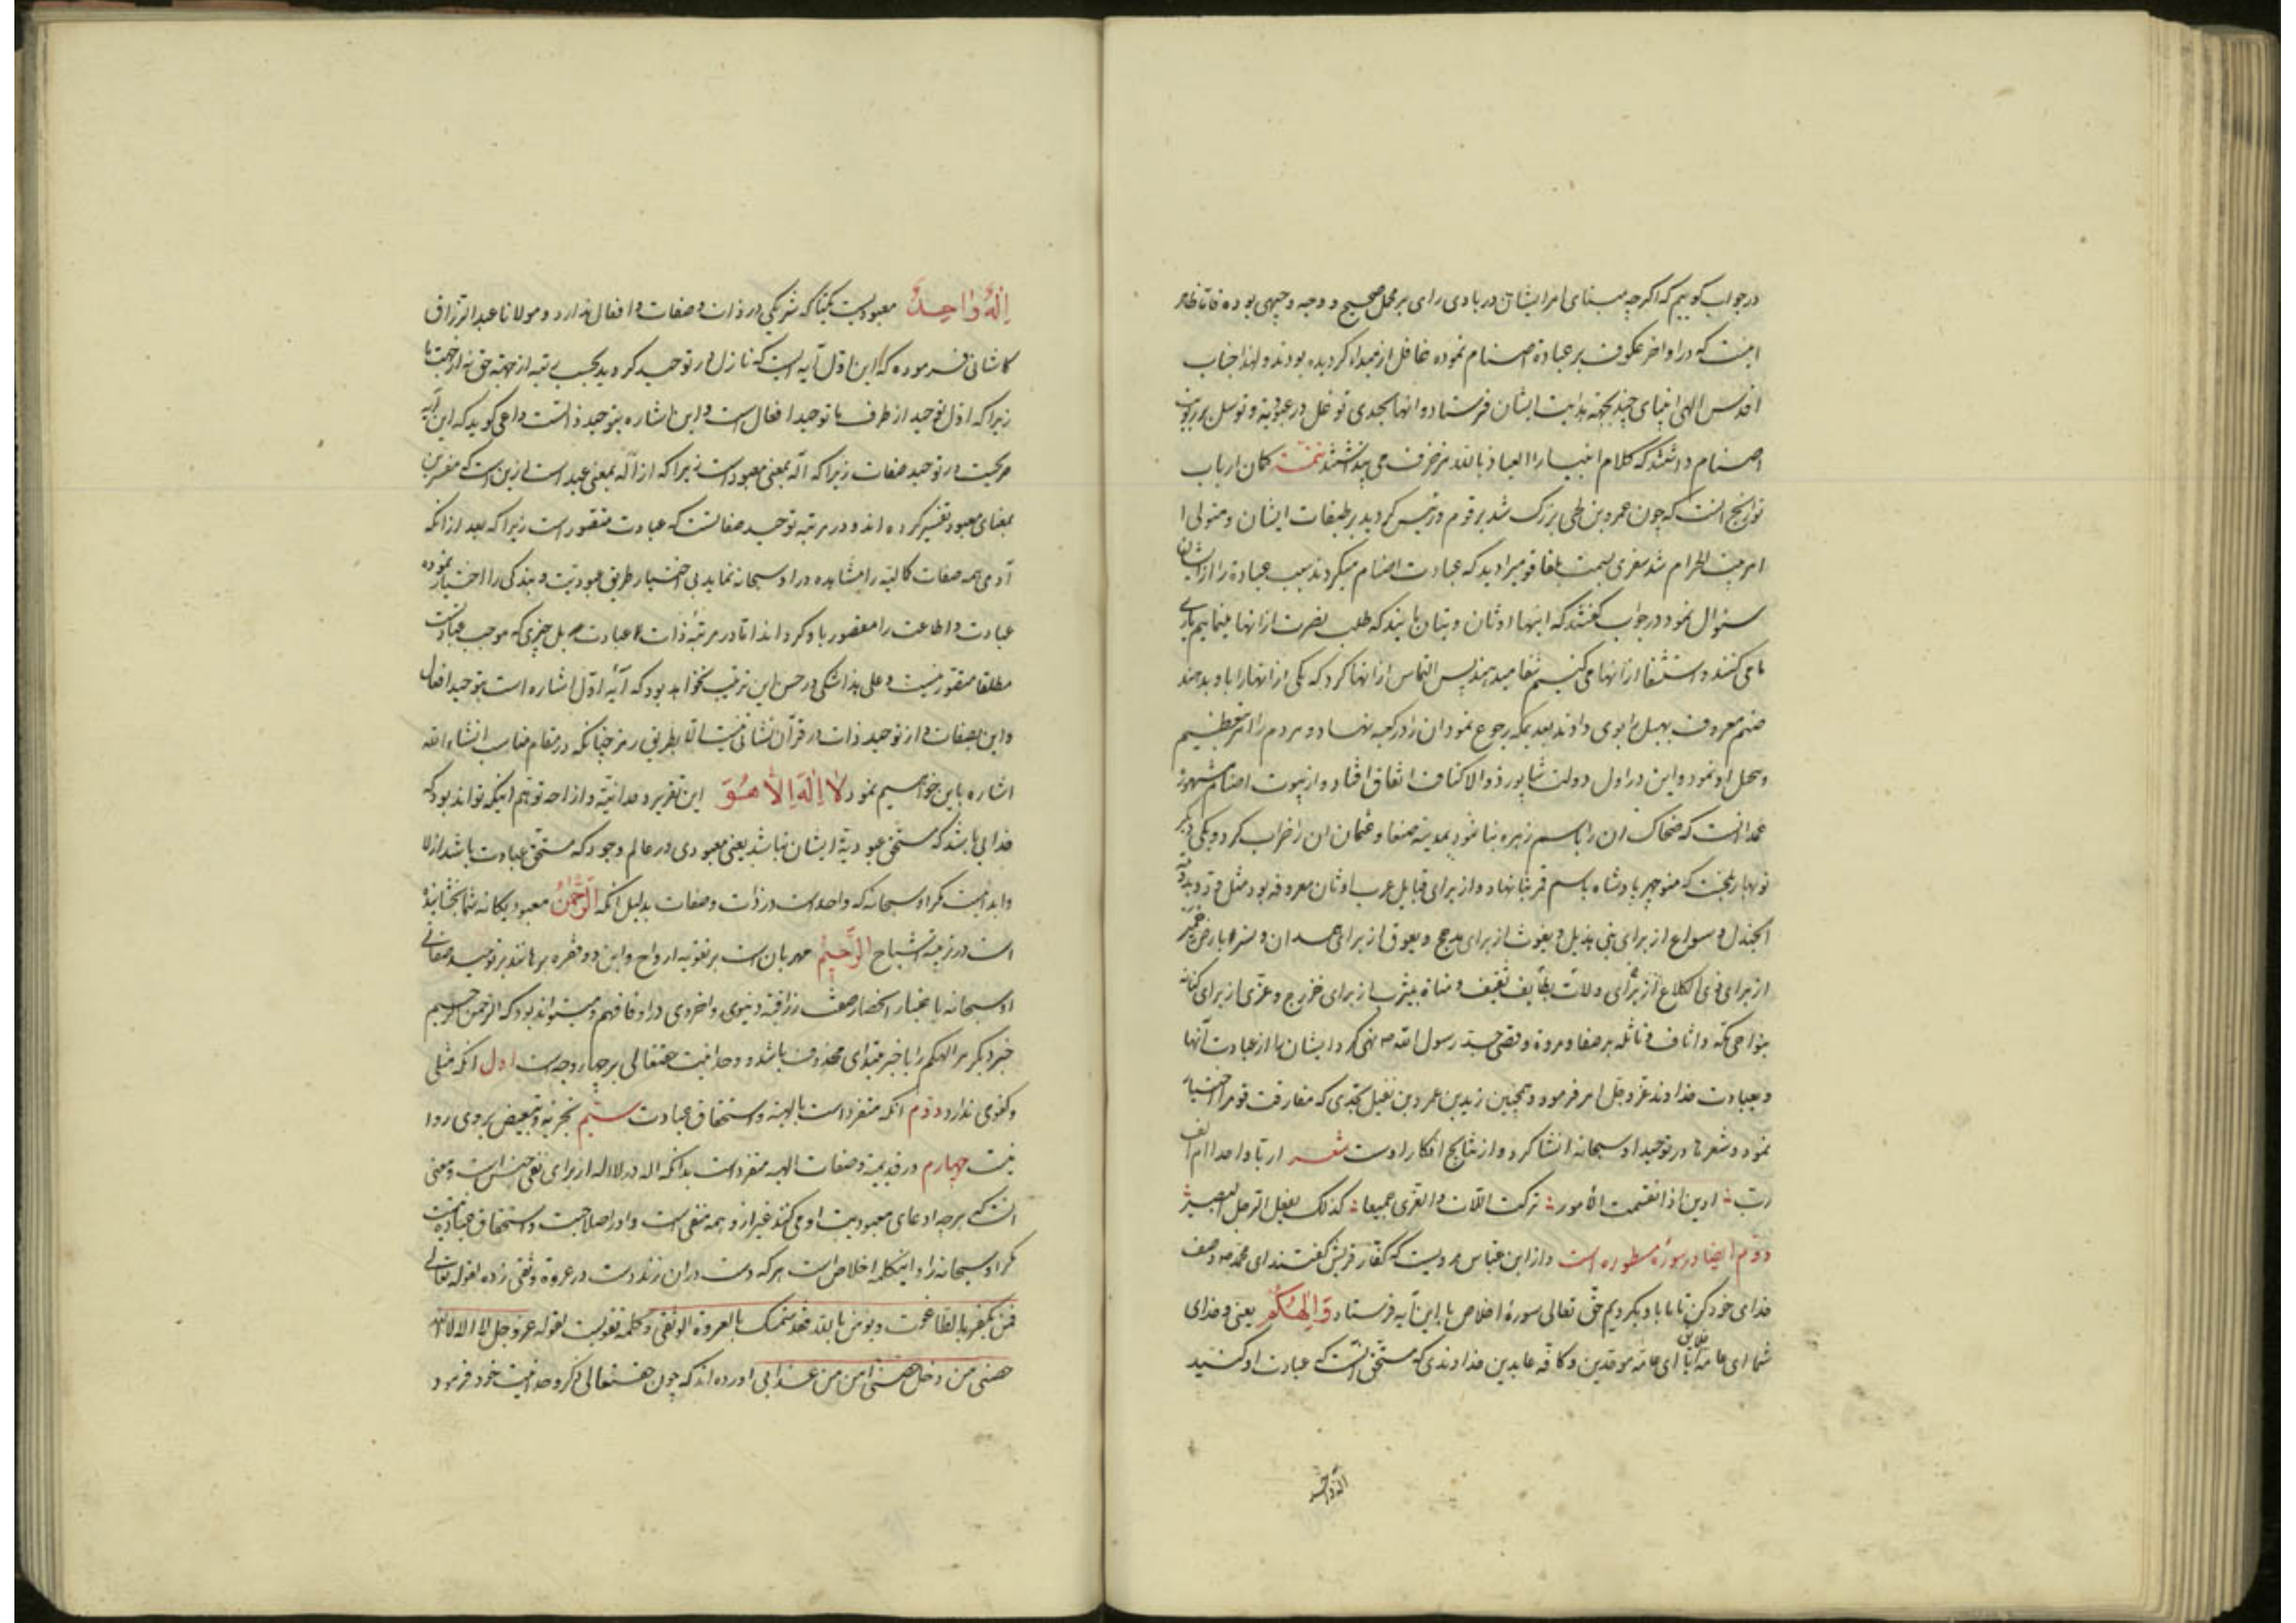 در جواب گوییم که اگرچه مبنای امر ایشان در بادی رای بر محمل صحیح و وجه وجیهی بوده فاما ظاهر
اینست که در اواخر عکوف بر عبادة اصنام نموده غافل از مبداء گردیده بودند و لهذا جناب
اقدس الهی انبیای چند بجهة هدایت ایشان فرستاد و انها بحدی توغل در عبودیة و توسل بربوبیت
اصنام داشتند که کلام انبیا را العیاذ بالله مزخرف می پنداشتند تتمة کمان ارباب
تواریخ انست که چون عمرو بن لحی بزرک شد بر قوم و رئیس کردید بر طبقات ایشان و متولی ا
امر بیت الحرام شد سفری بسمت بلقا قومیرا دید که عبادت اصنام میکردند سبب عبادة را از ایشان
سئوال نمود در جواب گفتند که اینها اوثان و بتان مایند که طلب نصرت از انها مینماییم یاری
ما می کنند و استشفا از انها می کنیم شفا میدهند پس التماس از انها کرد که یکی از انها را باو بدهند
صنم معروف بهبل را بوی دادند بعد بمکه رجوع نمود ان را در کعبه نهاد و مردم را امر بتعظیم
وی نمود و این در اول دولت شاپور ذوالاکتاف اتفاق افتاد و از بیوت اصنام مشهوره
غمدانست که ضحاک ان را باسم زهره بنا نمود بمدینه صنعا و عثمان ان را خراب کرد و یکی دیگر
نوبهار بلخست که منوچهر پادشاه باسم قمر بنا نهاد و از برای قبایل عرب اوثان معروفه بود مثل ود بدومة
الجندل و سواع از برای بنی هذیل و یغوث از برای مذحج و یعوق از برای همدان و نسر بارض حمیر
از برای ذی الکلاع و لات بطایف ثقیف و مناة بیثرب از برای خزرج و عزی از برای کنانه
بنواحی مکه و اساف و نائله بر صفا و مروة و قصی جد رسول الله ص نهی کرد ایشان را از عبادت آنها
و بعبادت خداوند عز و جل امر فرمود و همچنین زید بن عمرو بن نفیل بحدی که مفارقت قوم را اختیار
نمود و شعرها در توحید او سبحانه انشا کرد و از نتایج افکار اوست شعر اربا واحدا ام الف
رب ادین اذا تقسمت الامور ترکت اللات و العزی جمیعا کذلک یفعل الرجل البصیر
دوم ایضا در سوره مسطوره است و از ابن عباس مرویست که کفار قریش گفتند ای محمد ص وصف
خدای خود کن تا ما باو بگرویم حق تعالی سوره اخلاص با این آیه فرستاد وَاِلٰهُکُمْ یعنی و خدای
شما ای عامه خلایق ای عامه موحدین و کافه عابدین خداوندی که مستحق انست که عبادت او کنید
اله واحد
اِلٰهٌ وَاحِدٌ معبودیست یکتا که شریکی در ذات و صفات و افعال ندارد و مولانا عبدالرزاق
کاشانی فرموده که این اول آیه ایست که نازل در توحید گردید بحسب رتبه از جهة حق نه از جهت ما
زیرا که اول توحید از طرف ما توحید افعال است و این اشاره بتوحید ذاتست داعی گوید که این آیه
صریحست در توحید صفات زیرا که اله بمعنی معبود است زیرا که از اَلَه بمعنی عبد است ازین است که مفسرین
بمعنای معبود تفسیر کرده اند و در مرتبه توحید صفاتست که عبادت متصور است زیرا که بعد از انکه
آدمی همه صفات کمالیه را مشاهده در او سبحانه نماید بی اختیار طریق عبودیت و بندگی را اختیار نموده
عبادت و اطاعت را مقصور باو گرداند اما در مرتبه ذات عبادت بل چیزی که موجب عبادتست
مطلقا متصور نیست و علی هذا شکی در حسن این ترتیب نخواهد بود که آیه اول اشاره است بتوحید افعال
و این بصفات و از توحید ذات در قرآن نشانی نیست الا بطریق رمز چنانکه در مقام مناسب انشاء الله
اشاره باین خواهیم نمود لَا اِلٰهَ اِلَّا هُوَ این تقریر وحدانیة و ازاحه توهم اینکه تواند بود که
خدایی باشد که مستحق عبودیة ایشان نباشد یعنی معبودی در عالم وجود که مستحق عبادت باشد ازلا
و ابدا نیست مکر او سبحانه که واحد است در ذات و صفات بدلیل انکه الرَّحْمٰنُ معبود یگانه شما بخشاینده
است در تربیة اشباح الرَّحِیْمُ مهربان است بر تقویه ارواح و این دو فقره برهانند بر توحید صفاتی
او سبحانه باعتبار انحصار صفت رزاقیة دنیوی و اخروی در او فافهم و میتواند بود که الرحمن الرحیم
خبر دیگر مر الهکم را یا خبر مبتدای محذوف باشد و وحدانیت حقتعالی بر چهار وجه است اول انکه مثلی
و کفوی ندارد دوم انکه متفرد است بالهیة و استحقاق عبادت سیم تجزیه و تبعیض بر وی روا
نیست چهارم در قدیمیة و صفات الهیه متفرد است بدانکه اله در لا اله از برای نفی جنس است و معنی
انست که هر چه ادعای معبودیت او می کنند غیر از و همه منتفی است و او را صلاحیت و استحقاق عبادة نیست
مکر او سبحانه را و اینکلمه اخلاص است هر که دست در ان زند دست در عروة وثقی زده لقوله تعالی
فمن یکفر بالطاغوت و یومن بالله فقد استمسک بالعروة الوثقی و کلمه تقویست لقوله عز و جل لا اله الا الله
حصنی من دخل حصنی امن من عذابی آورده اند که چون حقتعالی ذکر وحدانیت خود فرمود